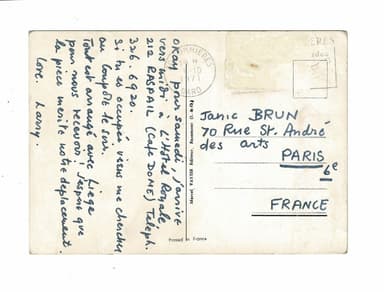 OKAY pour samedi, j'arrive
vers midi à L'Hôtel Royale
212 RASPAIL (Café DOME) Teleph.
326.6920.
Si tu es occupée viens me chercher
au Comp de soir.
Tout est arrangé avec Liege
pour nous recevoir! J'espère que
la pièce mérite votre déplacement.
Love. Larry.
GARD
Janic BRUN
70 Rue St. André
des arts
PARIS
6e
FRANCE
Printed in France